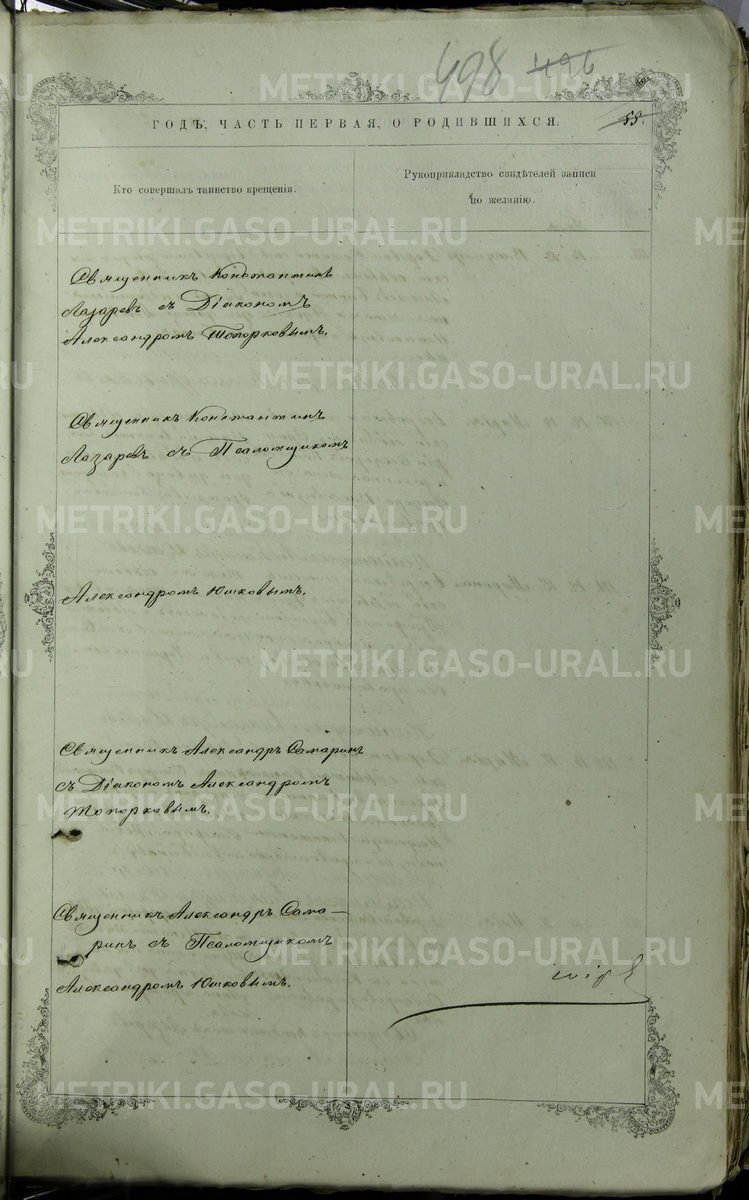 498 496
ГОДЪ, ЧАСТЬ ПЕРВАЯ, О РОДИВШИХСЯ.
55.
Кто совершалъ таинство крещенія.
Рукоприкладство свидѣтелей записи
по желанію.
Священникъ Константинъ
Лазаревъ съ Діакономъ
Александромъ Топорковымъ.
Священникъ Константинъ
Лазаревъ съ Псаломщикомъ
Александромъ Юшковымъ.
Священникъ Александръ Самаринъ
съ Діакономъ Александромъ
Топорковымъ.
Священникъ Александръ Сама-
ринъ съ Псаломщикомъ
Александромъ Юшковымъ.
METRIKI.GASO-URAL.RU